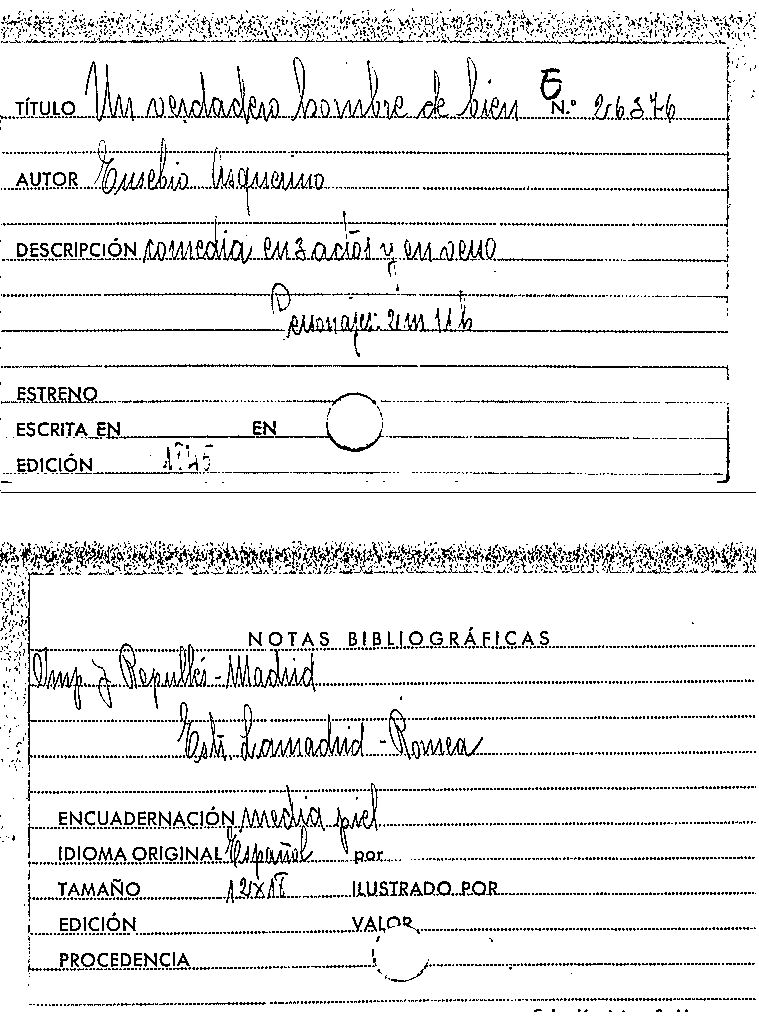 TÍTULO Un verdadero hombre de bien N.º 26376
AUTOR Eusebio Asquerino
DESCRIPCIÓN comedia en 3 actos y en verso
Personajes: 2 m 11 h
ESTRENO
ESCRITA EN EN
EDICIÓN
NOTAS BIBLIOGRÁFICAS
Imp. J Repullés - Madrid
Estr. Lamadrid - Romea
ENCUADERNACIÓN media piel
IDIOMA ORIGINAL Español por
TAMAÑO 12x18 ILUSTRADO POR
EDICIÓN VALOR
PROCEDENCIA